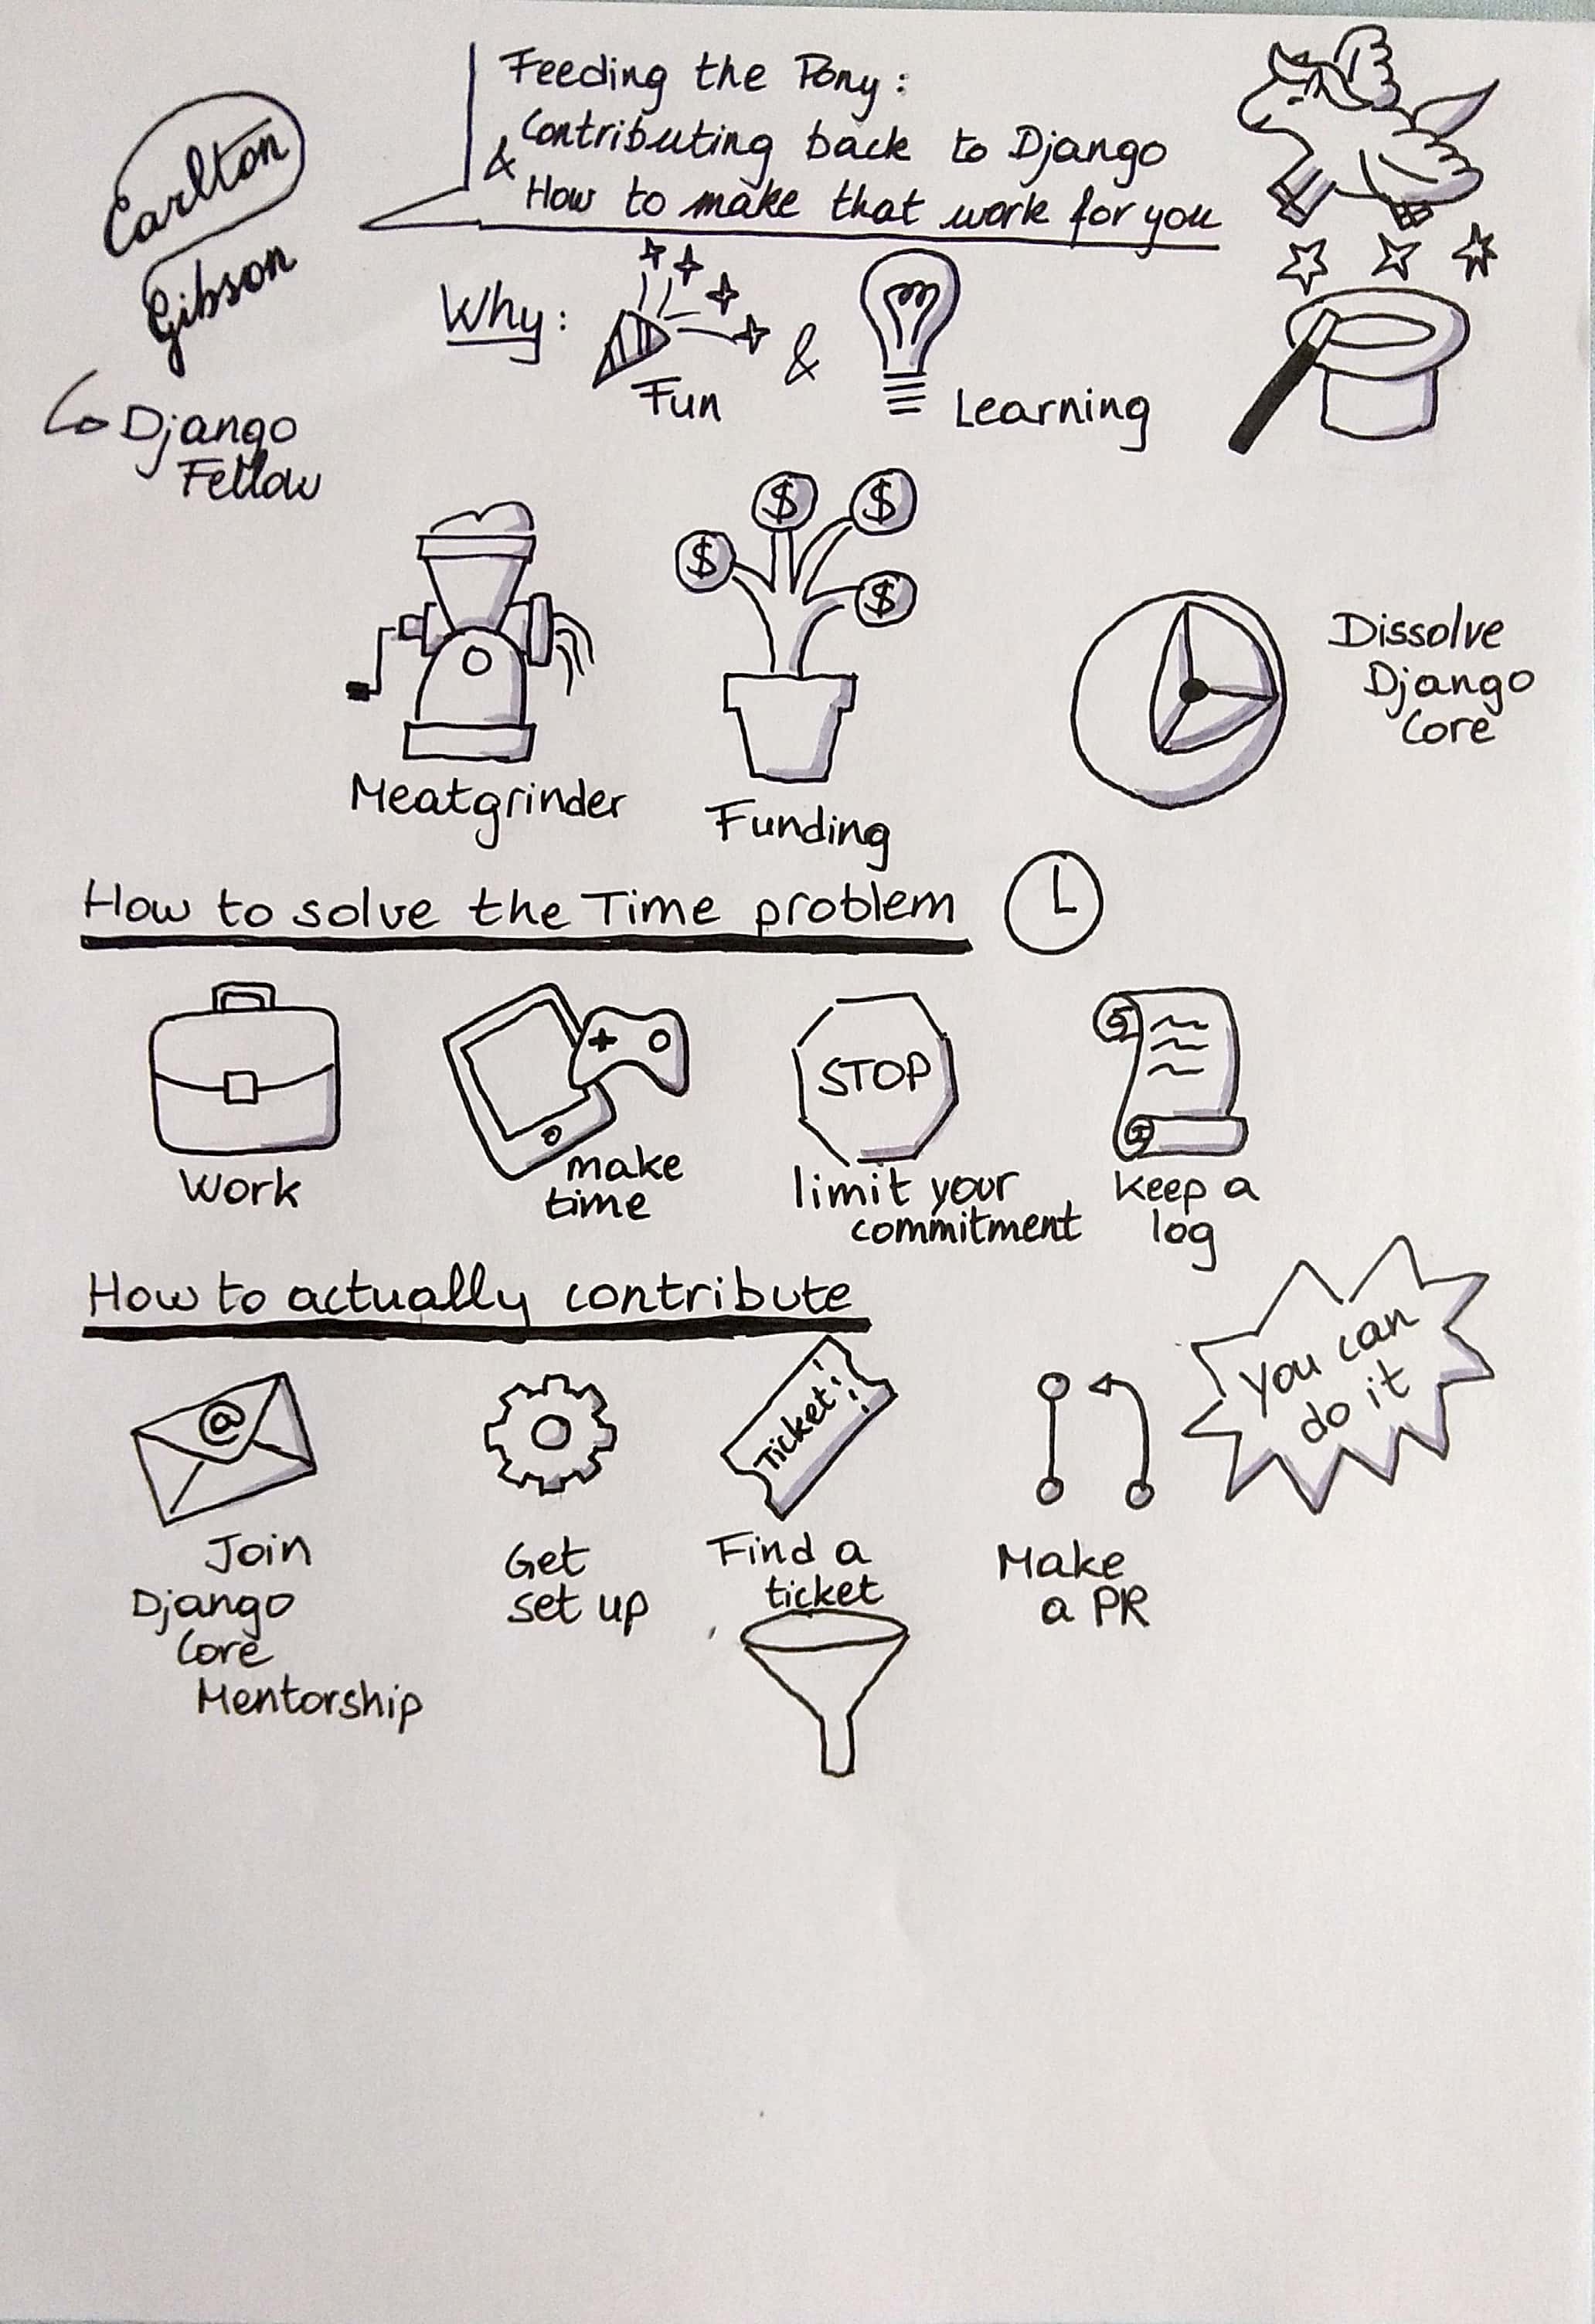 Carlton
Gibson
Django
Fellow
Feeding the Pony:
Contributing back to Django
&
How to make that work for you
Why:
Fun
&
Learning
$
$
$
$
Meatgrinder
Funding
Dissolve
Django
Core
How to solve the Time problem
Work
make
time
STOP
limit your
commitment
keep a
log
How to actually contribute
@
Join
Django
Core
Mentorship
Get
set up
Ticket!
Find a
ticket
Make
a PR
you can
do it